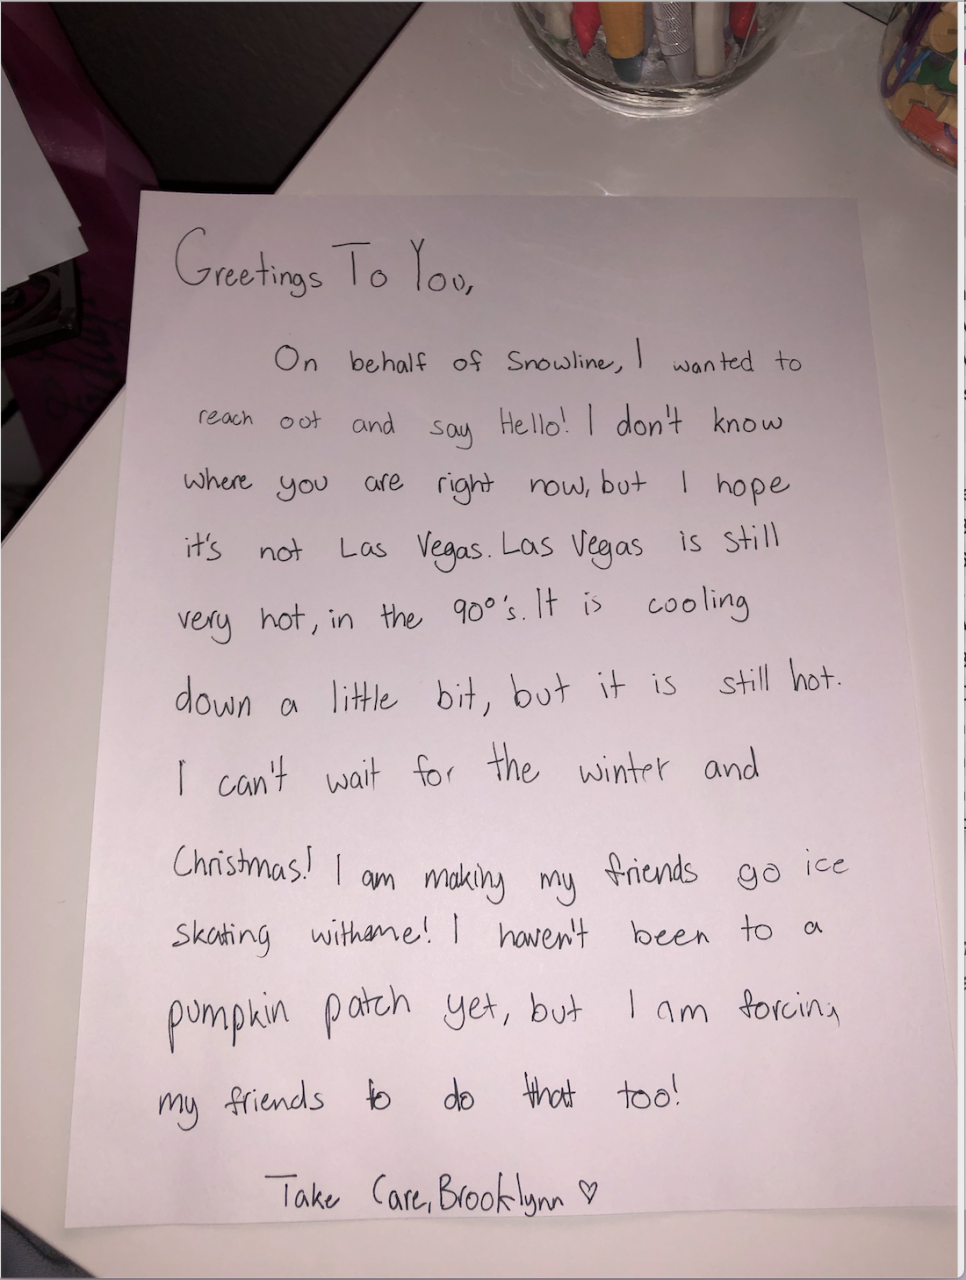 Greetings To You,
On behalf of Snowline, I wanted to
reach oot and say Hello! I don't know
where you are right now, but I hope
it's not Las Vegas. Las Vegas is still
very hot, in the 90°'s. It is cooling
down a little bit, but it is still hot.
I can't wait for the winter and
Christmas! I am making my friends go ice
skating with me! I haven't been to a
pumpkin patch yet, but I am forcing
my friends to do that too!
Take Care, Brooklynn ♡